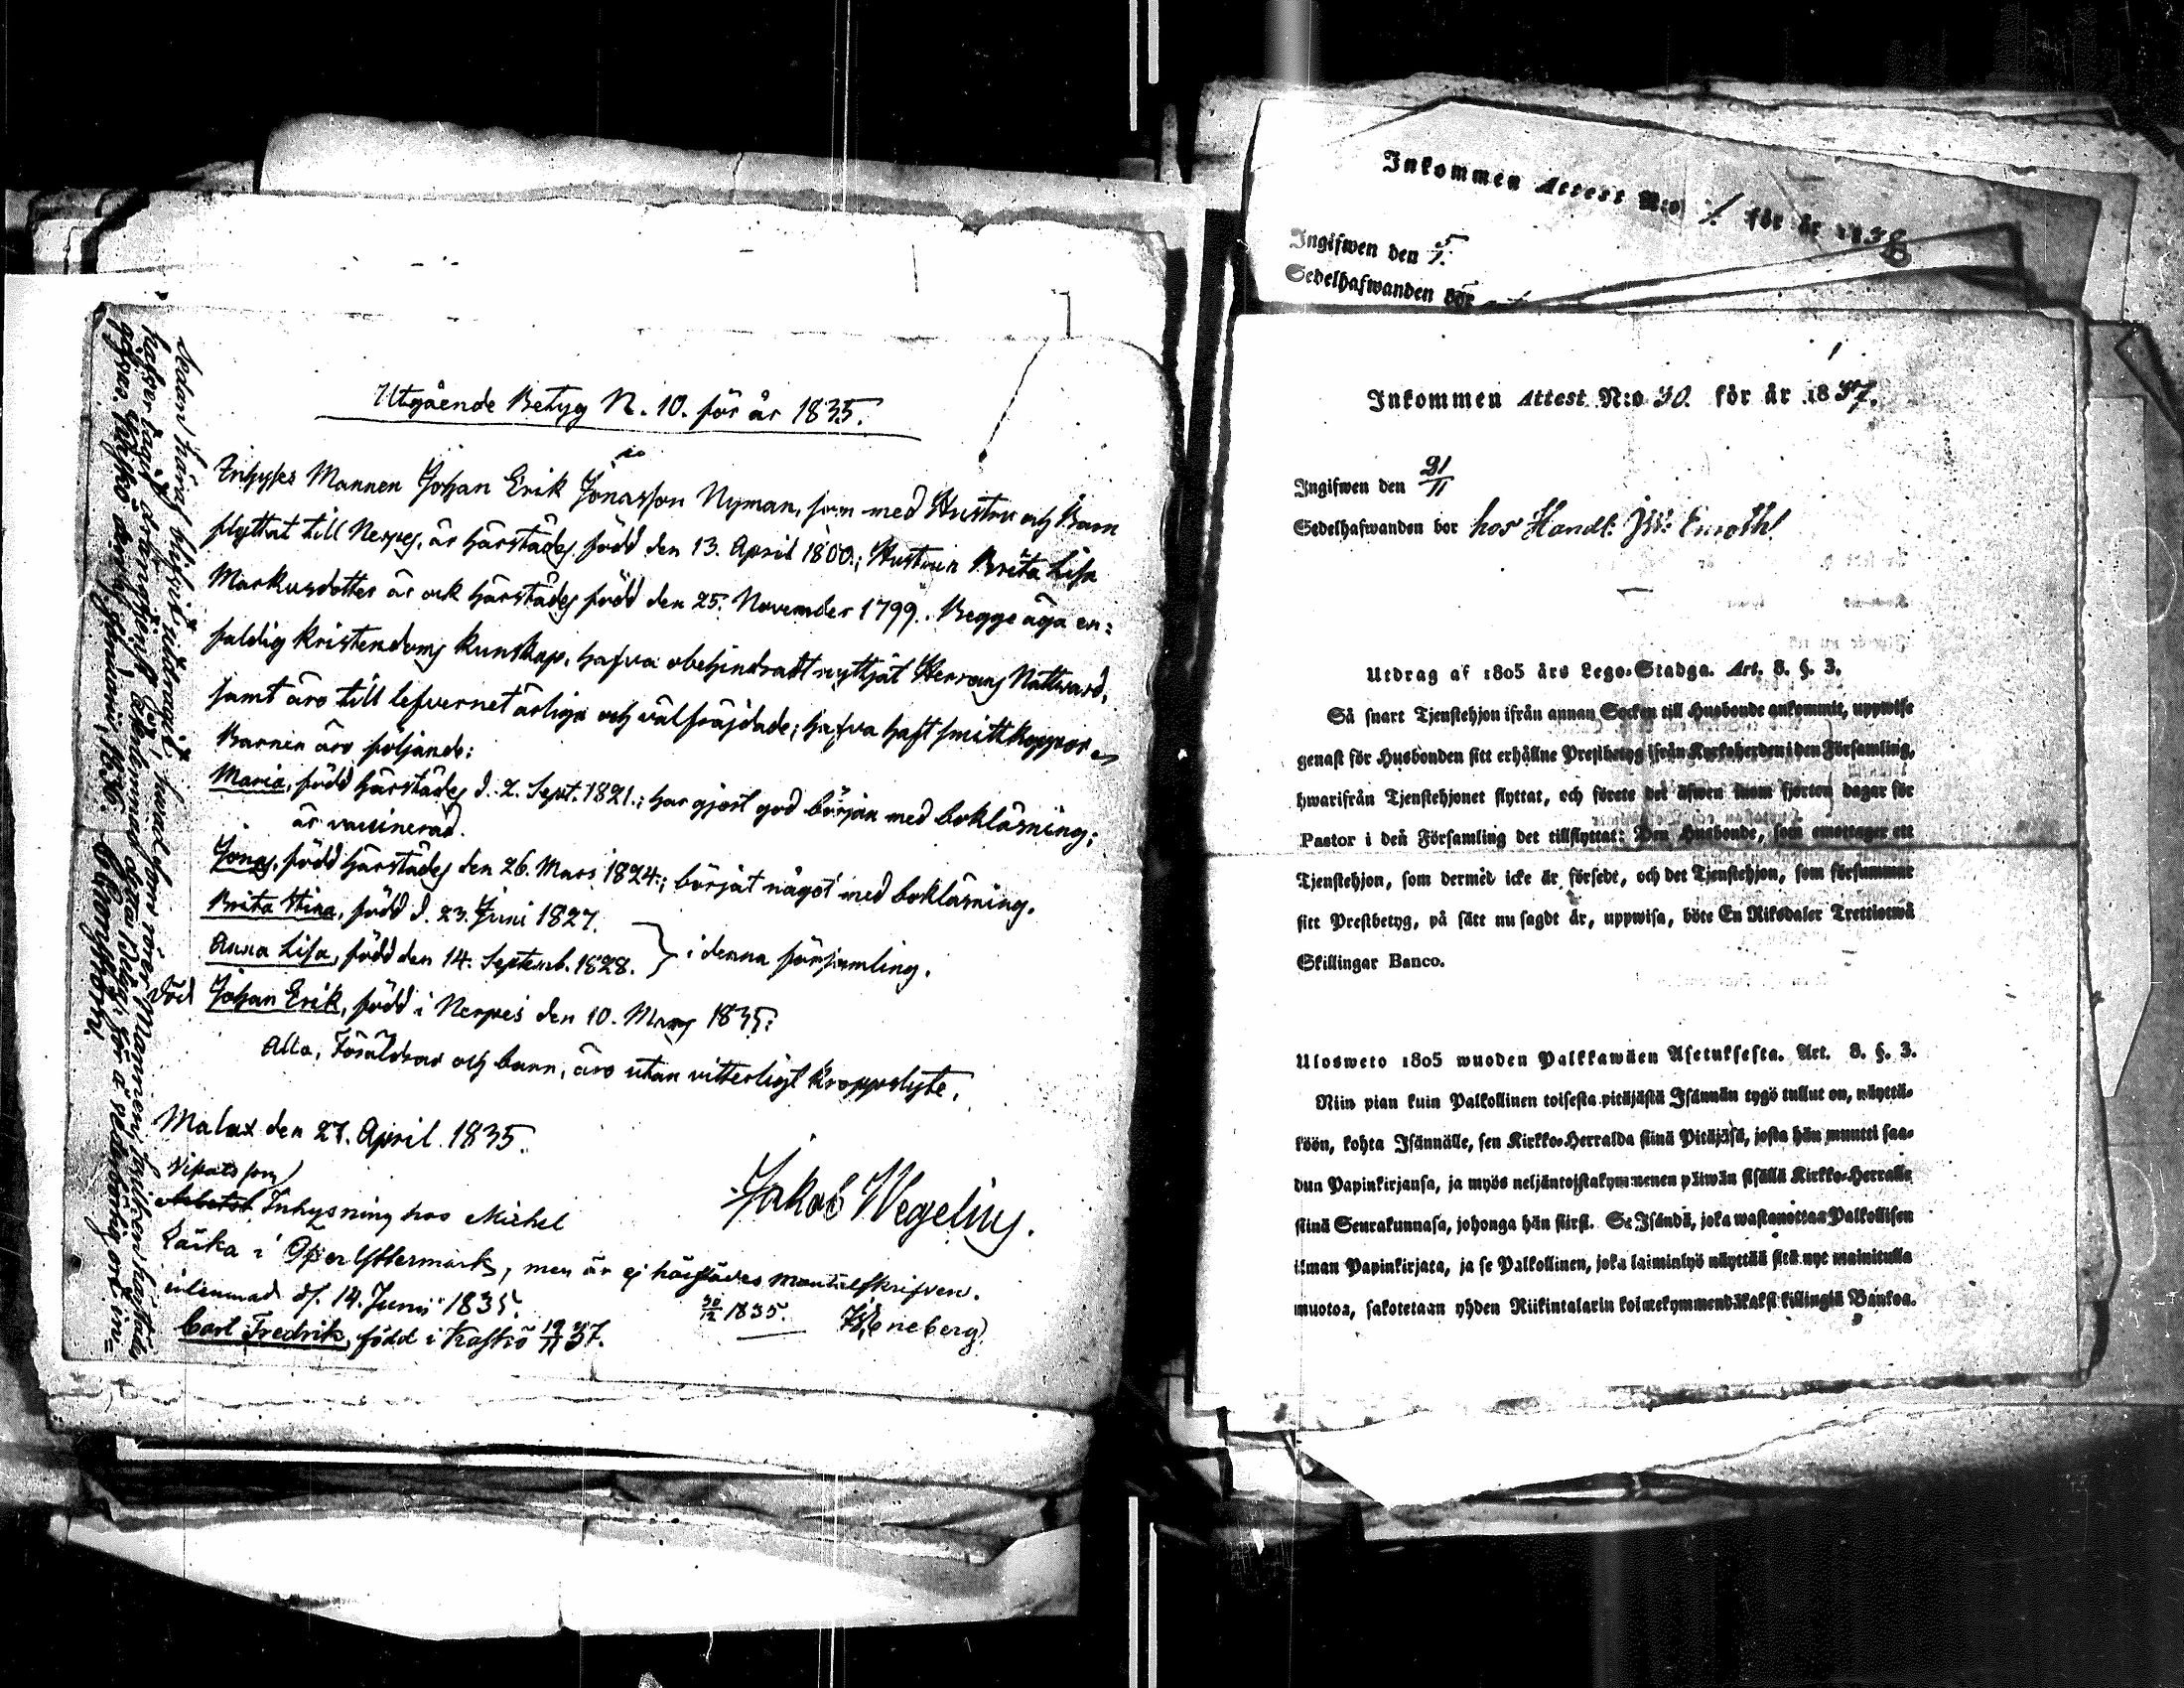 Utgående Betyg N. 10. för år 1835.
Inhyses Mannen Johan Erik Jönasson Nyman, som med Hustru och Barn
flyttat till Nerpes, är härstädes född den 13. April 1800.; Hustrun Brita Lisa
Markusdotter är ock härstädes född den 25. November 1799. Begge äga en:
faldig kristendoms kunskap, hafva obehindradt nyttjat Herrans Nattvard,
samt äro till lefvernet ärliga och välfräjdade; hafva haft smittkoppor
Barnen äro följande:
Maria, född härstädes d. 2. Sept. 1821.; har gjort god början med bokläsning;
är vaccinerad.
Jonas, född härstädes den 26. Mars 1824.; börjat något med bokläsning.
Brita Stina, född d. 23. Juni 1827.
Anna Lisa, född den 14. Septemb. 1828. } i denna församling.
död Johan Erik, född i Nerpes den 10. Mars 1835;
Alla, Föräldrar och barn, äro utan vitterligt kroppslyte.
Malax den 27. April. 1835.
Jakob Wegelius.
Vistats som
Inhysning hos Michel
i Öfver Yttermark, men är ej härstädes mantalsskrifven.
inlemnad d. 14. Junii 1835.
30/12 1835.
Carl Fredrik, född i Kaskö 19/11 37.
Sedan härif blifvit uttagit,
Inkommen Attest N:o 1. för år 1838
Ingifwen den 5/1.
Sedelhafwanden bor
Inkommen Attest N:o 30. för år 1837.
Ingifwen den 21/11
Sedelhafwanden bor hos Handl:
Utdrag af 1805 års Lego-Stadga. Art. 8. §. 3.
Så snart Tjenstehjon ifrån annan Socken till Husbonde ankommit, uppwise
genast för Husbonden sitt erhållne Prestbetyg ifrån Kyrkoherden i den Församling,
hwarifrån Tjenstehjonet flyttat, och förete det äfwen inom fjorton dagar för
Pastor i den Församling det tillflyttat: Den Husbonde, som emottager ett
Tjenstehjon, som dermed icke är försedt, och det Tjenstehjon, som försummar
sitt Prestbetyg, på sätt nu sagdt är, uppwisa, böte En Riksdaler Trettiotwå
Skillingar Banco.
Ulosweto 1805 wuoden Palkkawäen Asetuksesta. Art. 8. §. 3.
Niin pian kuin Palkollinen toisesta pitäjästä Isännän tygö tullut on, näyttä-
köön, kohta Isännälle, sen Kirkko-Herralda siinä Pitäjäsä, josta hän muutti saa-
dun Papinkirjansa, ja myös neljäntoistakymmenen päiwän sisällä Kirkko-Herralle
siinä Seurakunnasa, johonga hän siirst. Se Isändä, joka wastanottaa Palkollisen
ilman Papinkirjata, ja se Palkollinen, joka laiminlyö näyttää sitä nyt mainitulla
muotoa, sakotetaan yhden Riikintalarin kolmekymmendäkaksi killingiä Bankoa.